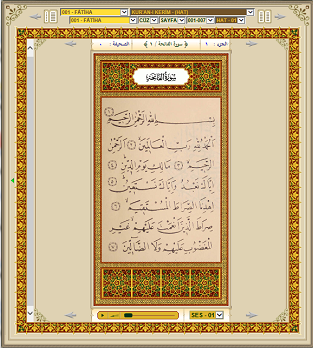 001 - FATİHA KUR'AN-I KERİM - (HAT)
001 - FATİHA CÜZ SAYFA 001-007 HAT - 01
الجزء : ١ سورة الفاتحة / ١ الصحيفة : ٠
سورة الفاتحة
بسم الله الرحمن الرحيم
الحمد لله رب العالمين الرحمن
الرحيم مالك يوم الدين
إياك نعبد وإياك نستعين
اهدنا الصراط المستقيم
صراط الذين أنعمت عليهم غير
المغضوب عليهم ولا الضالين
SES - 01